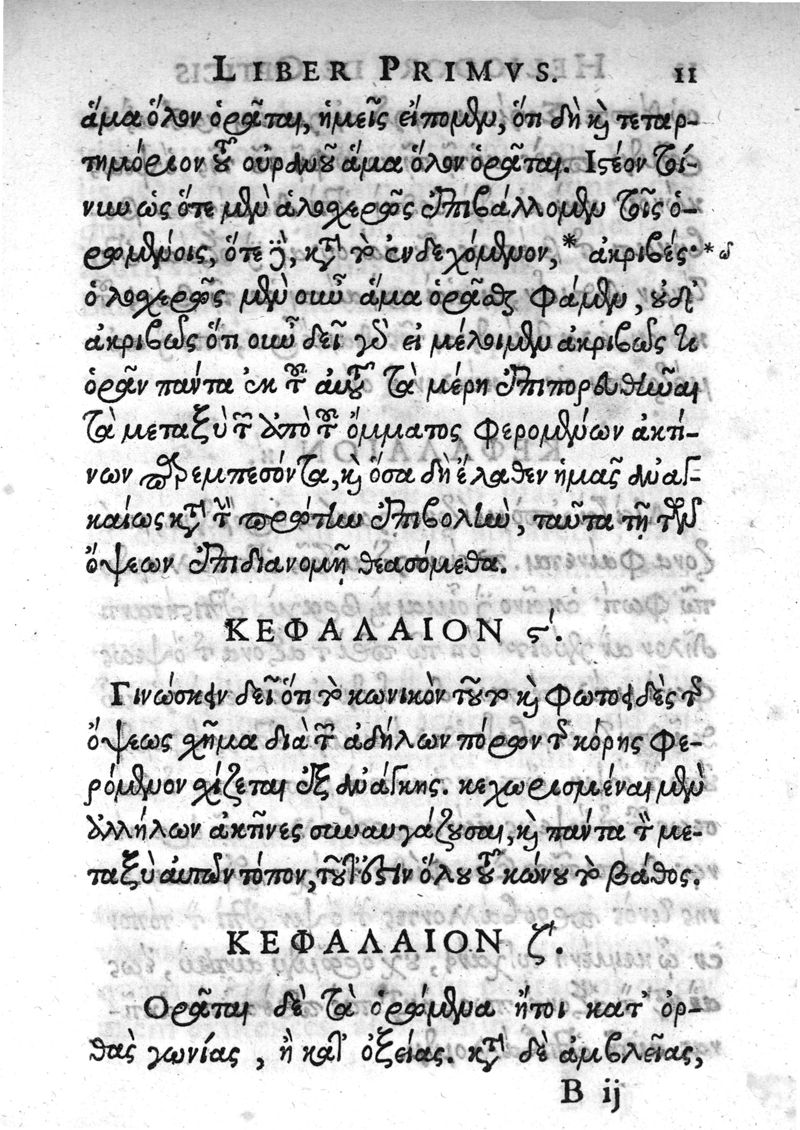 LIBER PRIMVS. 11
ἅμα ὅλον ὁρᾶται, ἡμεῖς εἴπομεν, ὅτι δὴ καὶ τεταρ-
τημόριον τοῦ οὐρανοῦ ἅμα ὅλον ὁρᾶται. Ιστέον τοί-
νυν ὡς ὅτε μὲν ὁλοχερῶς ἐπιβάλλομεν τοῖς ὁ-
ρωμένοις, ὅτε δὲ, κατὰ τὸ ἐνδεχόμενον, * ἀκριβές·
ὁλοχερῶς μὲν οὖν ἅμα ὁρᾶσθαι φάμεν, οὐδ'
ἀκριβῶς ὅτι οὖν δεῖ γὰρ εἰ μέλοιμεν ἀκριβῶς τι
ὁρᾶν πάντα ἐκ τοῦ αὐτοῦ τὰ μέρη ἐπιπορευθῆναι
τὰ μεταξὺ τῶν ἀπὸ τοῦ ὄμματος φερομένων ἀκτί-
νων παρεμπεσόντα, καὶ ὅσα δὴ ἔλαθεν ἡμᾶς ἀναγ-
καίως κατὰ τὴν πρώτην ἐπιβολὴν, ταῦτα τῇ τῶν
ὄψεων ἐπιδιανομῇ θεασόμεθα.
ΚΕΦΑΛΑΙΟΝ ϛ'.
Γινώσκειν δεῖ ὅτι τὸ κωνικὸν τοῦτο καὶ φωτοειδὲς τῆς
ὄψεως σχῆμα διὰ τῶν ἀδήλων πόρων τῆς κόρης φε-
ρόμενον σχίζεται ἐξ ἀνάγκης. κεχωρισμέναι μὲν
ἀλλήλων ἀκτῖνες συναυγάζουσαι, καὶ πάντα τὸν με-
ταξὺ αὐτῶν τόπον, τοῦτ' ἔστιν ὅλου τοῦ κώνου τὸ βάθος.
ΚΕΦΑΛΑΙΟΝ ζ'.
Ορᾶται δὲ τὰ ὁρώμενα ἤτοι κατ' ὀρ-
θὰς γωνίας, ἢ κατ' ὀξείας. κατὰ δὲ ἀμβλείας,
B ij